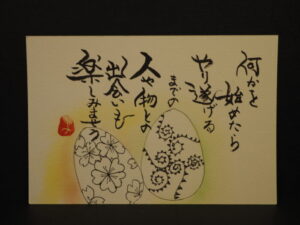 何かを始めたら
やり遂げる
までの
人や物との
出会いも
楽しみませう